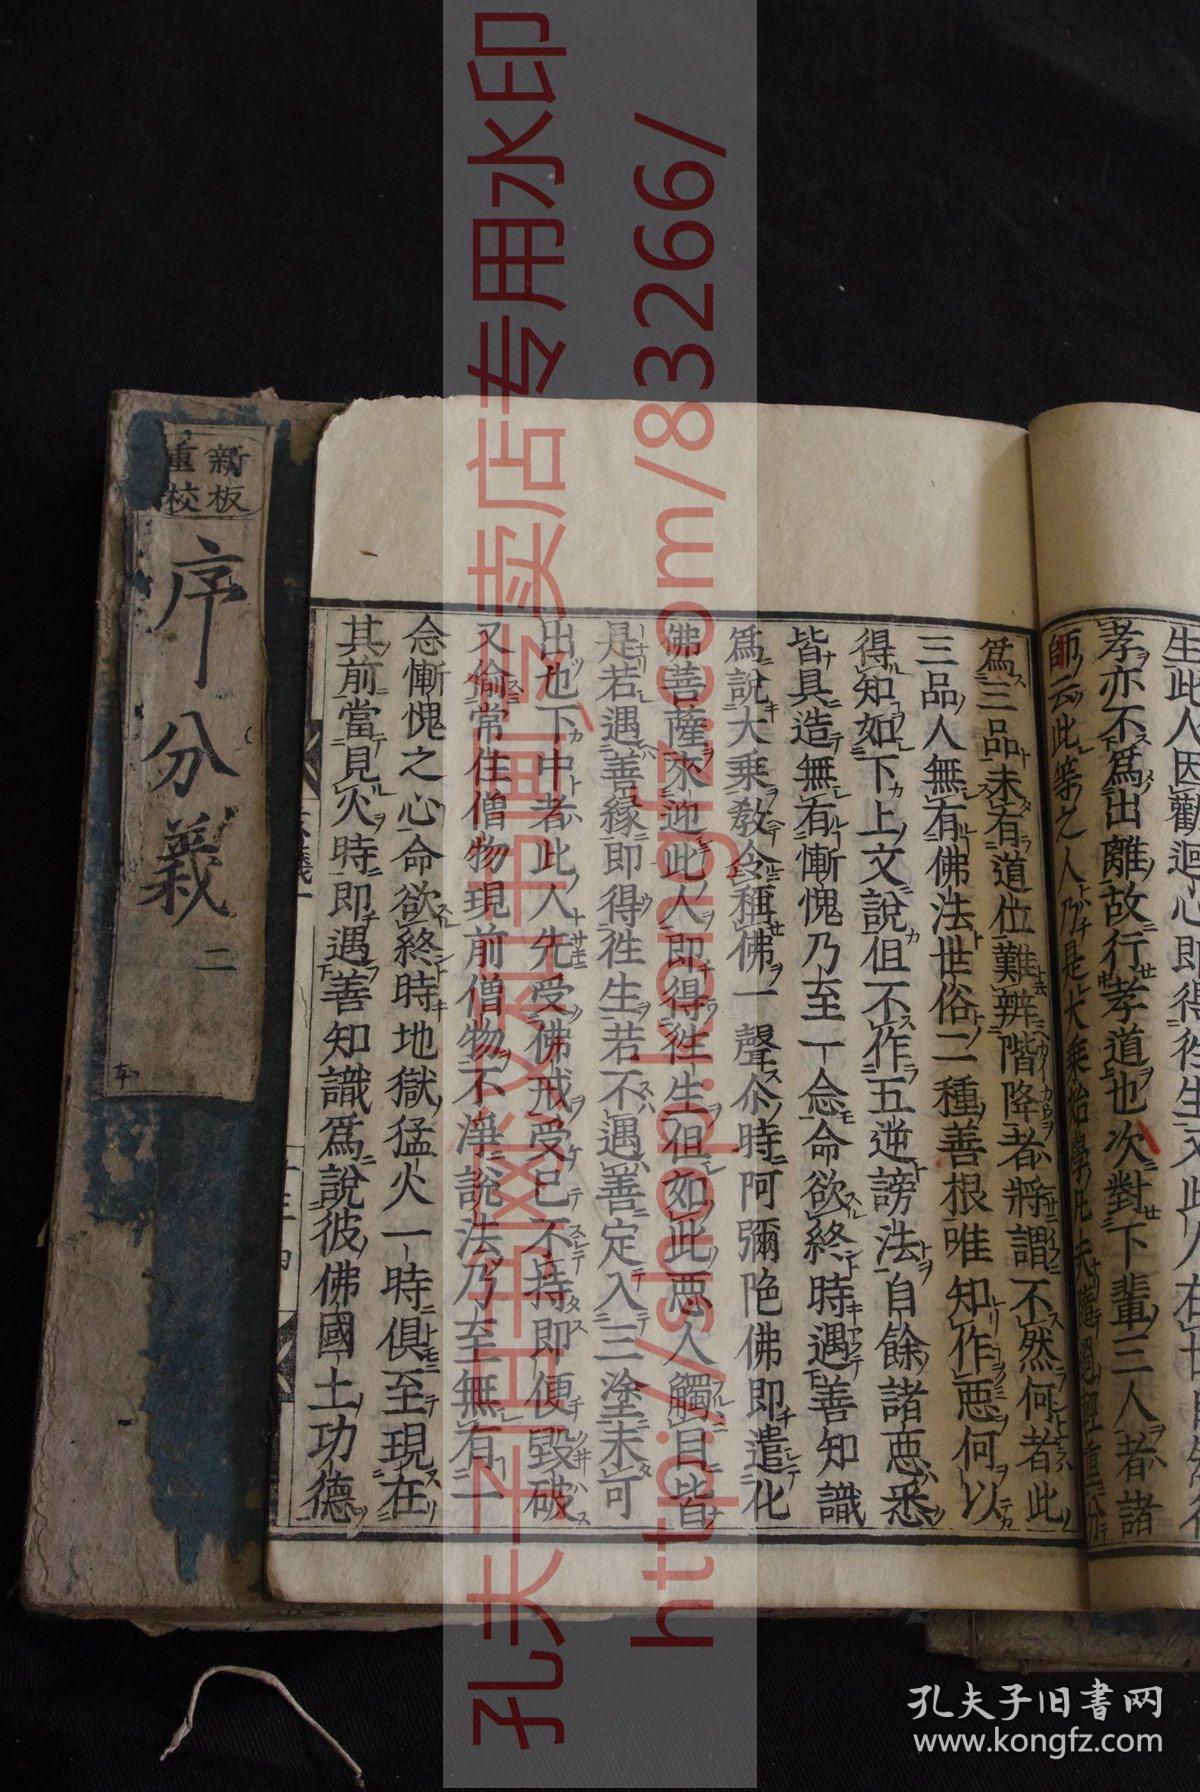 生此人因勸迴心即得往生又此人在世
孝亦不爲出離故行孝道也次對下輩三人者諸
師云此等之人乃是大乘始學凡夫隨過輕重分
爲三品未有道位難辨階降者將謂不然何者此
三品人無有佛法世俗二種善根唯知作惡何以
得知如下上文說但不作五逆謗法自餘諸惡悉
皆具造無有慚愧乃至一念命欲終時遇善知識
爲說大乘教令稱佛一聲尒時阿彌陁佛即遣化
佛菩薩來迎此人即得往生但如此惡人觸目皆
是若遇善緣即得往生若不遇善定入三塗未可
出也下中者此人先受佛戒受已不持即便毀破
又偷常住僧物現前僧物不淨說法乃至無有一
念慚愧之心命欲終時地獄猛火一時俱至現在
其前當見火時即遇善知識爲說彼佛國土功德
新板
重校
序分義
二
孔夫子旧书网文知书画专卖店专用水印
http://shop.kongfz.com/83266/
孔夫子旧书网
www.kongfz.com